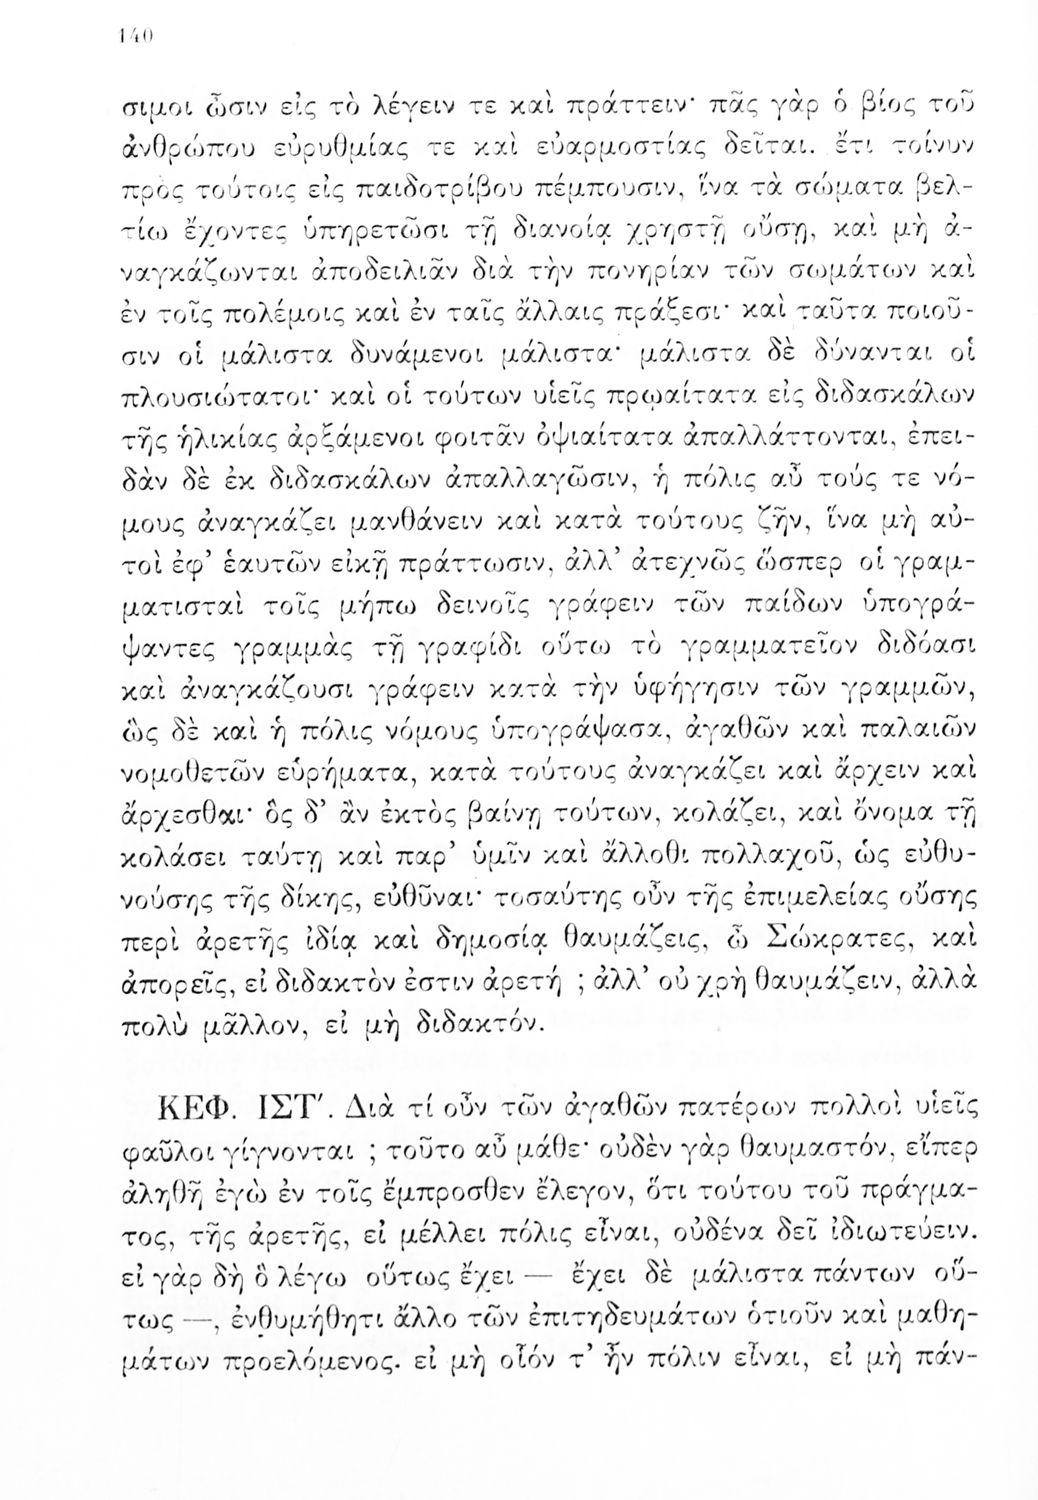 140
σιμοι ὦσιν εἰς τὸ λέγειν τε καὶ πράττειν· πᾶς γὰρ ὁ βίος τοῦ
ἀνθρώπου εὐρυθμίας τε καὶ εὐαρμοστίας δεῖται. ἔτι τοίνυν
πρὸς τούτοις εἰς παιδοτρίβου πέμπουσιν, ἵνα τὰ σώματα βελ-
τίω ἔχοντες ὑπηρετῶσι τῇ διανοίᾳ χρηστῇ οὔσῃ, καὶ μὴ ἀ-
ναγκάζωνται ἀποδειλιᾶν διὰ τὴν πονηρίαν τῶν σωμάτων καὶ
ἐν τοῖς πολέμοις καὶ ἐν ταῖς ἄλλαις πράξεσι· καὶ ταῦτα ποιοῦ-
σιν οἱ μάλιστα δυνάμενοι μάλιστα· μάλιστα δὲ δύνανται οἱ
πλουσιώτατοι· καὶ οἱ τούτων υἱεῖς πρῳαίτατα εἰς διδασκάλων
τῆς ἡλικίας ἀρξάμενοι φοιτᾶν ὀψιαίτατα ἀπαλλάττονται, ἐπει-
δὰν δὲ ἐκ διδασκάλων ἀπαλλαγῶσιν, ἡ πόλις αὖ τούς τε νό-
μους ἀναγκάζει μανθάνειν καὶ κατὰ τούτους ζῆν, ἵνα μὴ αὐ-
τοὶ ἐφ’ ἑαυτῶν εἰκῇ πράττωσιν, ἀλλ’ ἀτεχνῶς ὥσπερ οἱ γραμ-
ματισταὶ τοῖς μήπω δεινοῖς γράφειν τῶν παίδων ὑπογρά-
ψαντες γραμμὰς τῇ γραφίδι οὕτω τὸ γραμματεῖον διδόασι
καὶ ἀναγκάζουσι γράφειν κατὰ τὴν ὑφήγησιν τῶν γραμμῶν,
ὣς δὲ καὶ ἡ πόλις νόμους ὑπογράψασα, ἀγαθῶν καὶ παλαιῶν
νομοθετῶν εὑρήματα, κατὰ τούτους ἀναγκάζει καὶ ἄρχειν καὶ
ἄρχεσθαι· ὃς δ’ ἂν ἐκτὸς βαίνῃ τούτων, κολάζει, καὶ ὄνομα τῇ
κολάσει ταύτῃ καὶ παρ’ ὑμῖν καὶ ἄλλοθι πολλαχοῦ, ὡς εὐθυ-
νούσης τῆς δίκης, εὐθῦναι· τοσαύτης οὖν τῆς ἐπιμελείας οὔσης
περὶ ἀρετῆς ἰδίᾳ καὶ δημοσίᾳ θαυμάζεις, ὦ Σώκρατες, καὶ
ἀπορεῖς, εἰ διδακτὸν ἐστιν ἀρετή ; ἀλλ’ οὐ χρὴ θαυμάζειν, ἀλλὰ
πολὺ μᾶλλον, εἰ μὴ διδακτόν.
ΚΕΦ. ΙΣΤ′. Διὰ τί οὖν τῶν ἀγαθῶν πατέρων πολλοὶ υἱεῖς
φαῦλοι γίγνονται ; τοῦτο αὖ μάθε· οὐδὲν γὰρ θαυμαστόν, εἴπερ
ἀληθῆ ἐγὼ ἐν τοῖς ἔμπροσθεν ἔλεγον, ὅτι τούτου τοῦ πράγμα-
τος, τῆς ἀρετῆς, εἰ μέλλει πόλις εἶναι, οὐδένα δεῖ ἰδιωτεύειν.
εἰ γὰρ δὴ ὃ λέγω οὕτως ἔχει — ἔχει δὲ μάλιστα πάντων οὕ-
τως —, ἐνθυμήθητι ἄλλο τῶν ἐπιτηδευμάτων ὁτιοῦν καὶ μαθη-
μάτων προελόμενος. εἰ μὴ οἷόν τ’ ἦν πόλιν εἶναι, εἰ μὴ πάν-